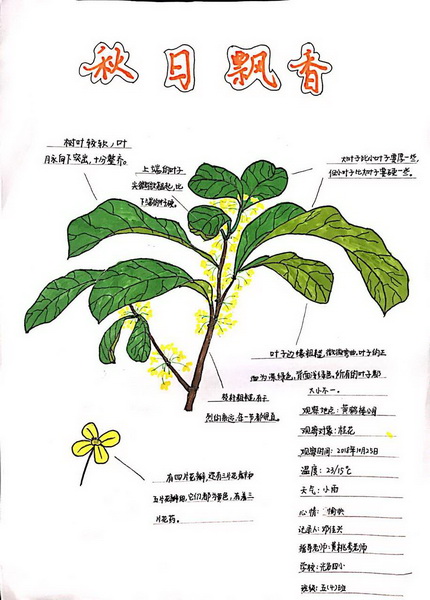 秋日飘香
树叶较软，叶
脉向下突出，十分整齐。
上端的叶子
尖微微翘起，比
大叶子比小叶子要厚一些，
但小叶子比大叶子要硬一些。
叶子边缘粗糙，微微弯曲，叶子的正
面为深绿色，背面浅绿色。所有的叶子都
大小不一。
枝干粗糙，有干
有四片花瓣，还有三片花瓣和
五片花瓣的，它们都为黄色，有着三
片花药。
观察地点：黄鹤楼公园
观察对象：桂花
观察时间：2018年10月23日
温度：23/15℃
天气：小雨
心情：愉快
记录人：邓佳兴
指导老师：黄老师
学校：
班级：五(4)班